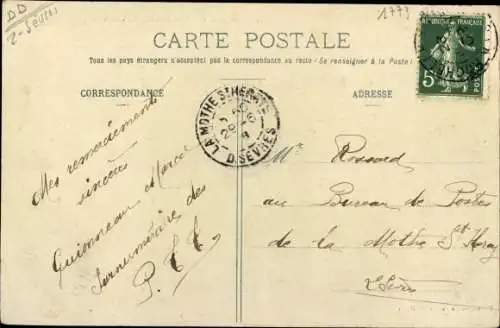 DD
2-Sevres
1773
CARTE POSTALE
Tous les pays étrangers n'acceptent pas la correspondance au recto (Se renseigner à la Poste)
CORRESPONDANCE
ADRESSE
REPUBLIQUE FRANÇAISE
5
POSTES
LA MOTHE ST HERAYE
D. SEVRES
Mes remerciements
sincères
Guionneau
Surnuméraire des
P. T. T.
Mr Rossard
au Bureau de Postes
de la Mothe St Heray
2 Sèvres